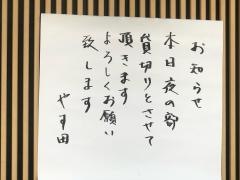 お知らせ
本日夜の部
貸切りとさせて
頂きます
よろしくお願い
致します
やす田